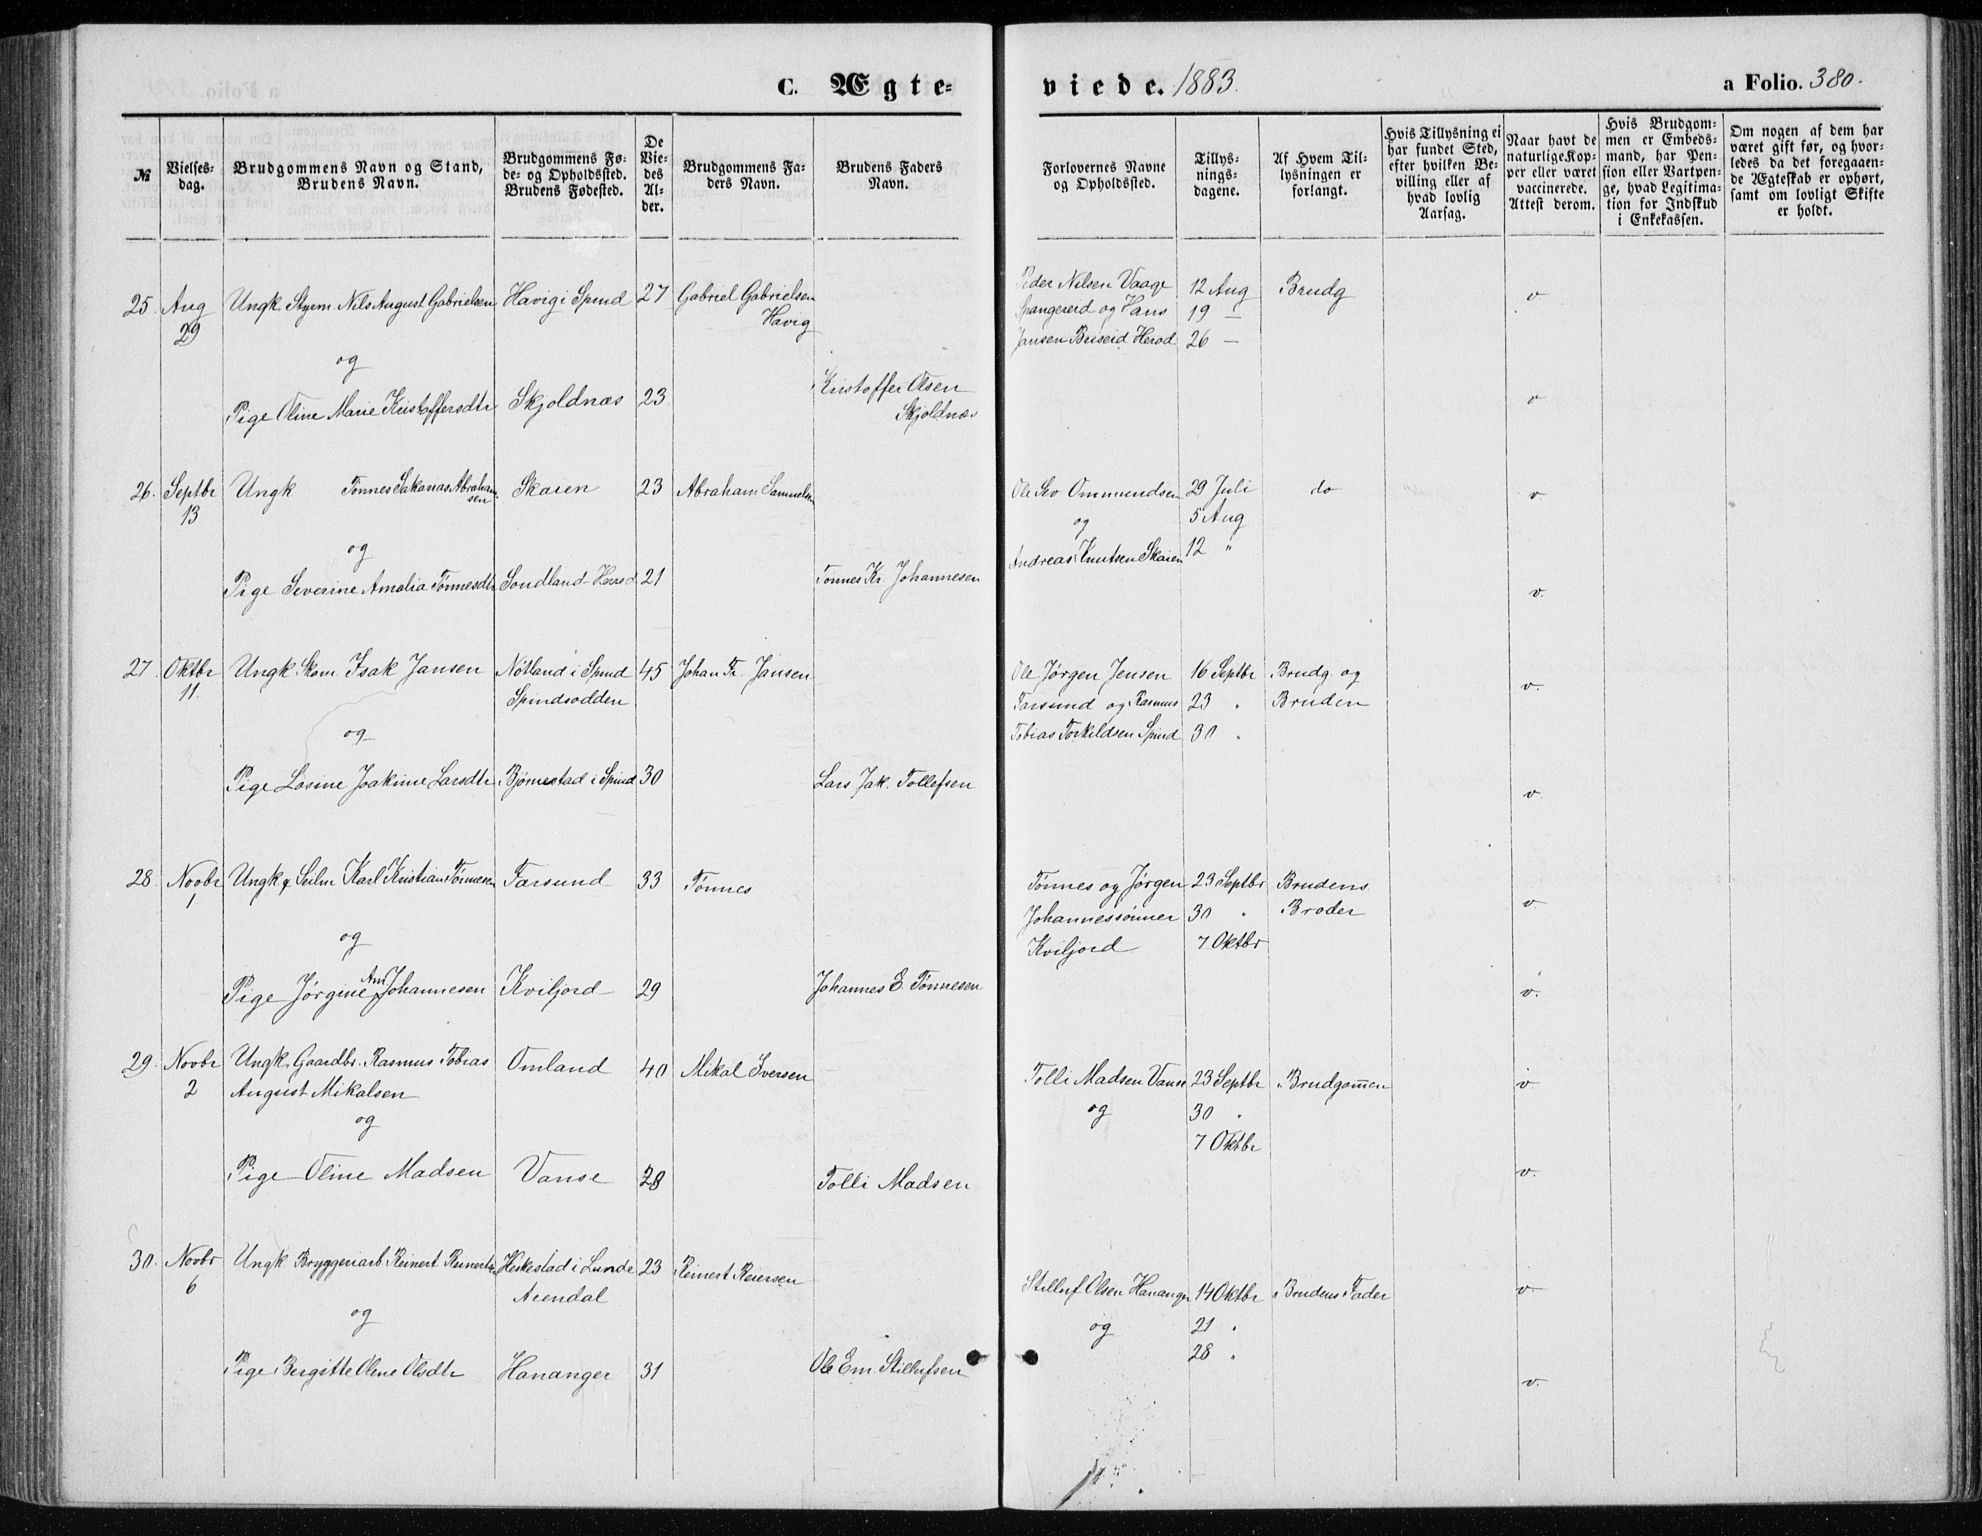 C. Ægte-
viede. 1883.
a Folio. 380.
№
Vielses-
dag.
Brudgommens Navn og Stand,
Brudens Navn.
Brudgommens Fø-
de- og Opholdssted.
Brudens Fødested.
De
Vie-
des
Al-
der.
Brudgommens Fa-
ders Navn.
Brudens Faders
Navn.
Forlovernes Navne
og Opholdssted.
Tillys-
nings-
dagene.
Af Hvem Til-
lysningen er
forlangt.
Hvis Tillysning ei
har fundet Sted,
efter hvilken Be-
villing eller af
hvad lovlig
Aarsag.
Naar havt de
naturlige Kop-
per eller været
vaccinerede.
Attest derom.
Hvis Brudgom-
men er Embeds-
mand, har Pen-
sion eller Vartpen-
ge, hvad Legitima-
tion for Indskud
i Enkekassen.
Om nogen af dem har
været gift før, og hvor-
ledes da det foregaaen-
de Ægteskab er ophørt,
samt om lovligt Skifte
er holdt.
25. Aug Ungk. Styrm. Nils August Gabrielsen Havig i Spind 27 Gabriel Gabrielsen Peder Nilsen Vaage 12 Aug Brudg v
29 Havig Spangereid og Hans 19 —
og Jansen Briseid Herod 26 —
Pige Oline Marie Kristoffersdtr Skjoldnæs 23. Kristoffer Olsen v
Skjoldnæs
26. Septbr Ungk Tønnes Sakarias Abraham- Skaien 23 Abraham Samuelsen Ole Sev Ommundsen 29 Juli do v.
13 sen og 5 Aug
og Andreas Knutsen Skaien 12 "
Pige Severine Amalia Tønnesdtr Sondland-Herred 21 Tønnes Kr. Johannesen v.
27. Oktbr Ungk. Skom. Isak Jansen Nøtland i Spind 45 Johan Fr. Jansen Ole Jørgen Jensen 16 Septbr Brudg. og v.
11. Spindsodden Farsund og Rasmus 23 " Bruden
og Tobias Torkildsen Spind 30 "
Pige Losine Joakime Larsdtr Bjørnestad i Spind 30 Lars Jak. Tollefsen v.
28. Novbr Ungk Karl Kristian Tønnesen Farsund 33 Tønnes Tønnes og Jørgen 23 Septbr Brudens v.
1 Johannessønner 30 " Broder
og Kviljord 7 Oktbr
Ane
Pige Jørgine Johannesen Kviljord 29 Johannes E. Tønnesen v.
29. Novbr Ungk. Gaardbr. Rasmus Tobias Omland 40 Mikal Iversen Tolli Madsen Vanse 23 Septbr Brudgommen v
2 August Mikalsen og 30 "
og 7 Oktbr
Pige Oline Madsen Vanse 28 Tolli Madsen v.
30. Novbr Ungk Bryggeriarb. Reinert Reinertsn Heskestad i Lunde 23 Reinert Reiersen Stilluf Olsen Hananger 14 Oktbr Brudens Fader v.
6 Arendal og 21 "
og 28 "
Pige Bergitte Olene Olsdtr Hananger 31 Ole Em. Stillufsen v.